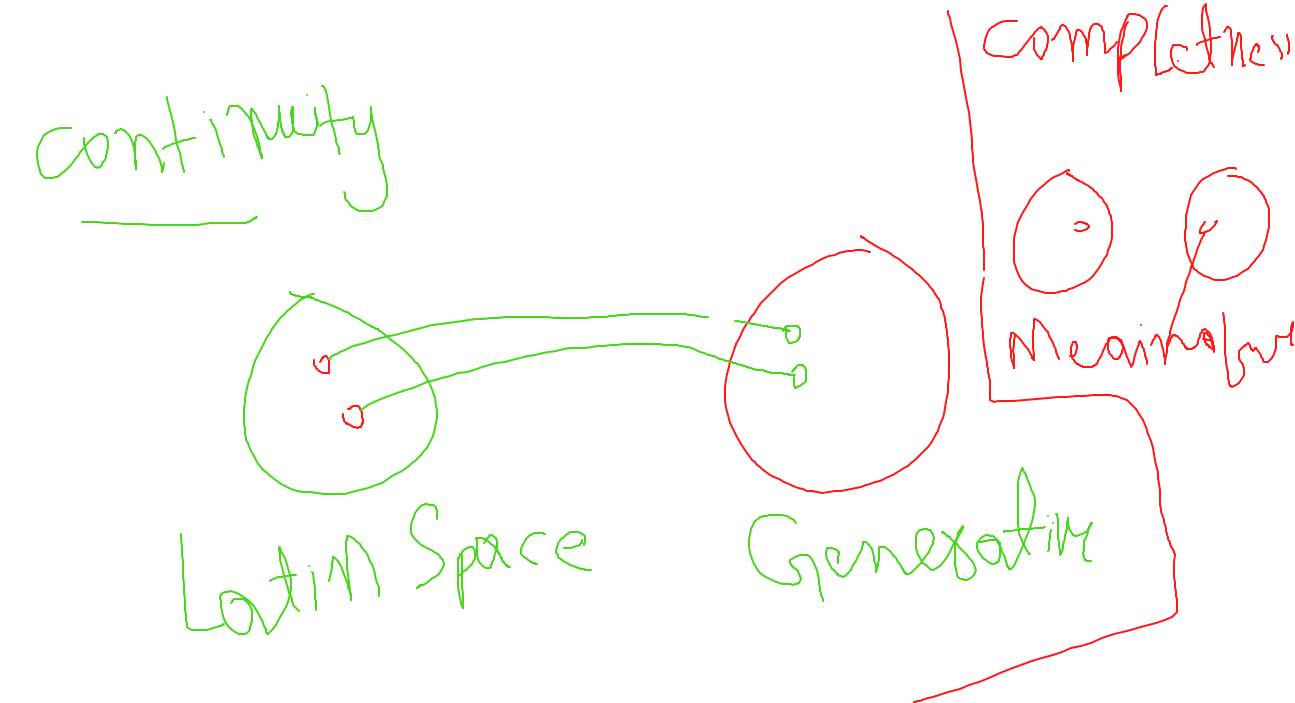 continuity
Latin Space
Generative
completness
Meaningful